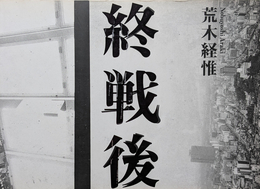 荒木経惟
終戦後